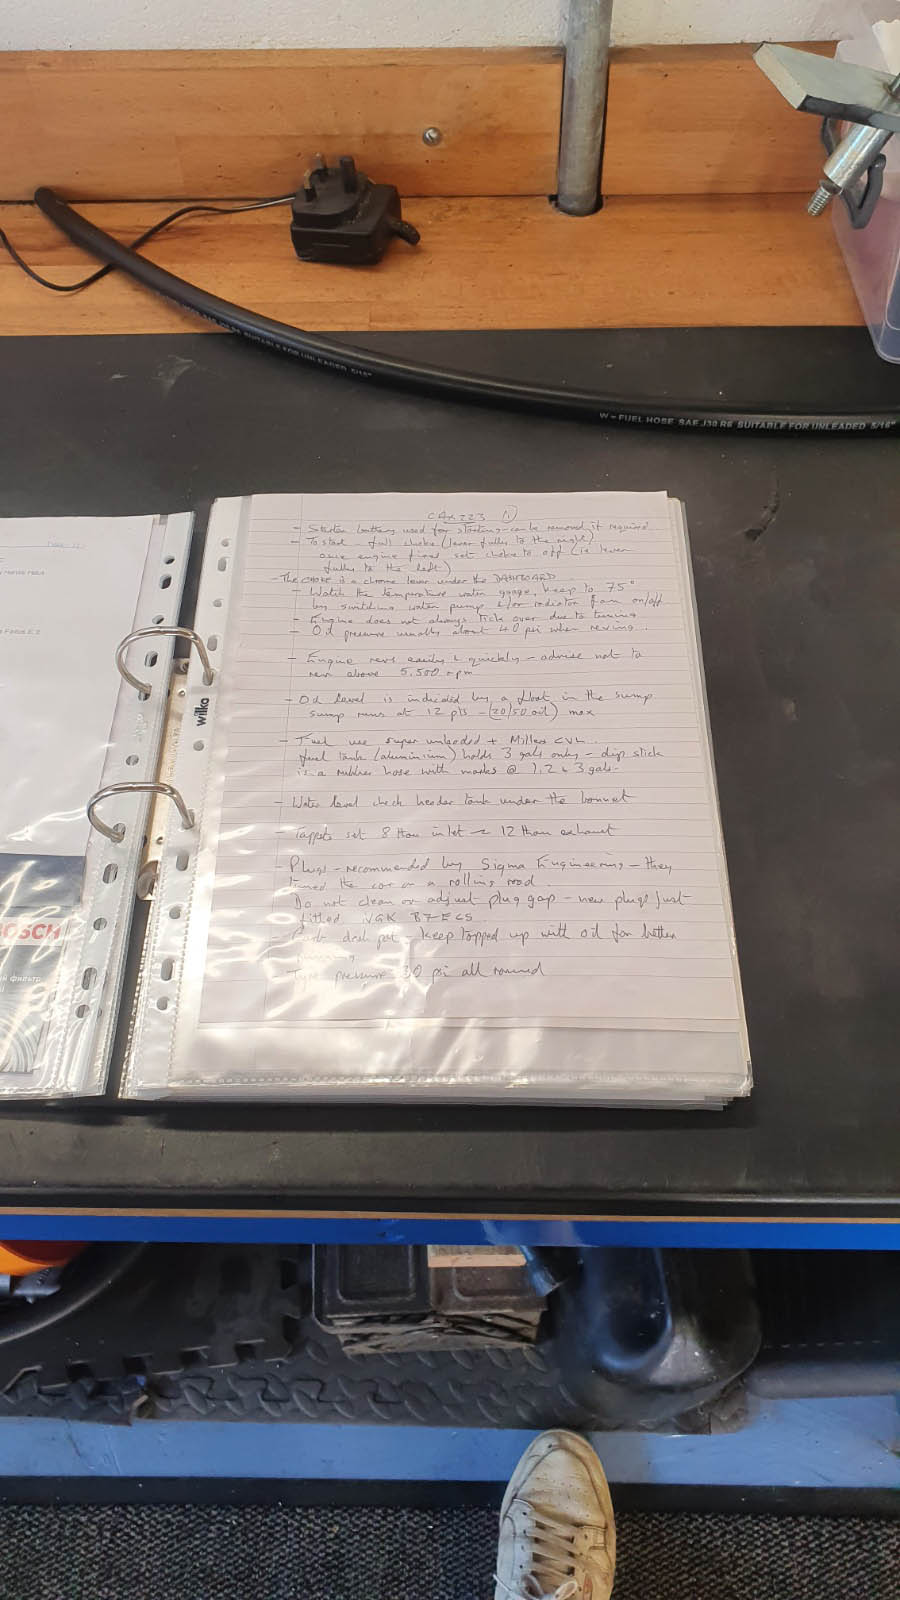 SUITABLE FOR UNLEADED 5/16"
W - FUEL HOSE SAE J30 R6 SUITABLE FOR UNLEADED 5/16"
CAX 223 ①
- Starter battery used for starting - can be removed if required
- To start - full choke (lever fully to the right)
once engine fired set choke to off (ie lever
fully to the left)
- The CHOKE is a chrome lever under the DASHBOARD
- Watch the temperature water guage, keep to 75°
by switching water pump &/or radiator fan on/off
- Engine does not always tick over due to tuning
- Oil pressure usually about 40 psi when reving.
- Engine revs easily & quickly - advise not to
rev above 5,500 rpm
- Oil level is indicated by a float in the sump
sump runs at 12 pts - (20/50 oil) max
- Fuel use super unleaded + Millers CVL
fuel tank (aluminium) holds 3 gals only - dip stick
is a rubber hose with marks @ 1, 2 & 3 gals -
- Water level check header tank under the bonnet
- Tappets set 8 thou inlet 12 thou exhaust
- Plugs - recommended by Sigma Engineering - they
tuned the car on a rolling road.
Do not clean or adjust plug gap - new plugs just
fitted NGK B7ECS
- Carb dash pot - keep topped up with oil for better
running
- Tyre pressure 30 psi all round
wilko
BOSCH